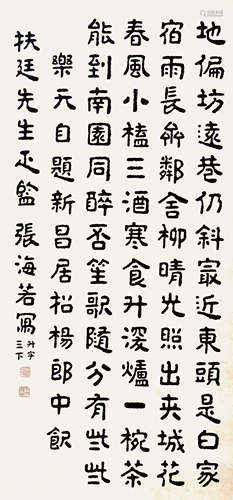 地偏坊遠巷仍斜冣近東頭是白家
宿雨長齊鄰舍柳晴光照出夾城花
春風小榼三酒寒食升深爐一椀茶
能到南園同醉否笙歌隨分有些些
樂天自題新昌居招楊郎中飲
扶廷先生正監 張海若寫 升字三下